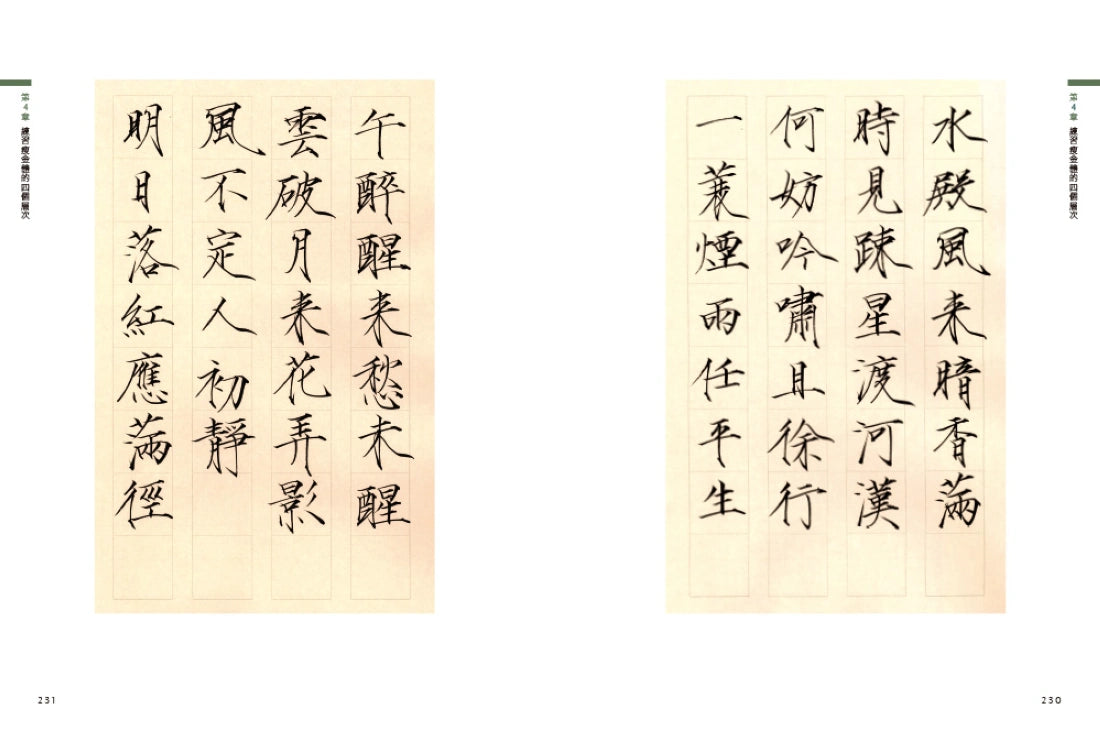 第4章 練習瘦金體的四個層次
水殿風来暗香滿
時見疎星渡河漢
何妨吟嘯且徐行
一蓑煙雨任平生
230
午醉醒来愁未醒
雲破月来花弄影
風不定人初靜
明日落紅應滿徑
第4章 練習瘦金體的四個層次
231